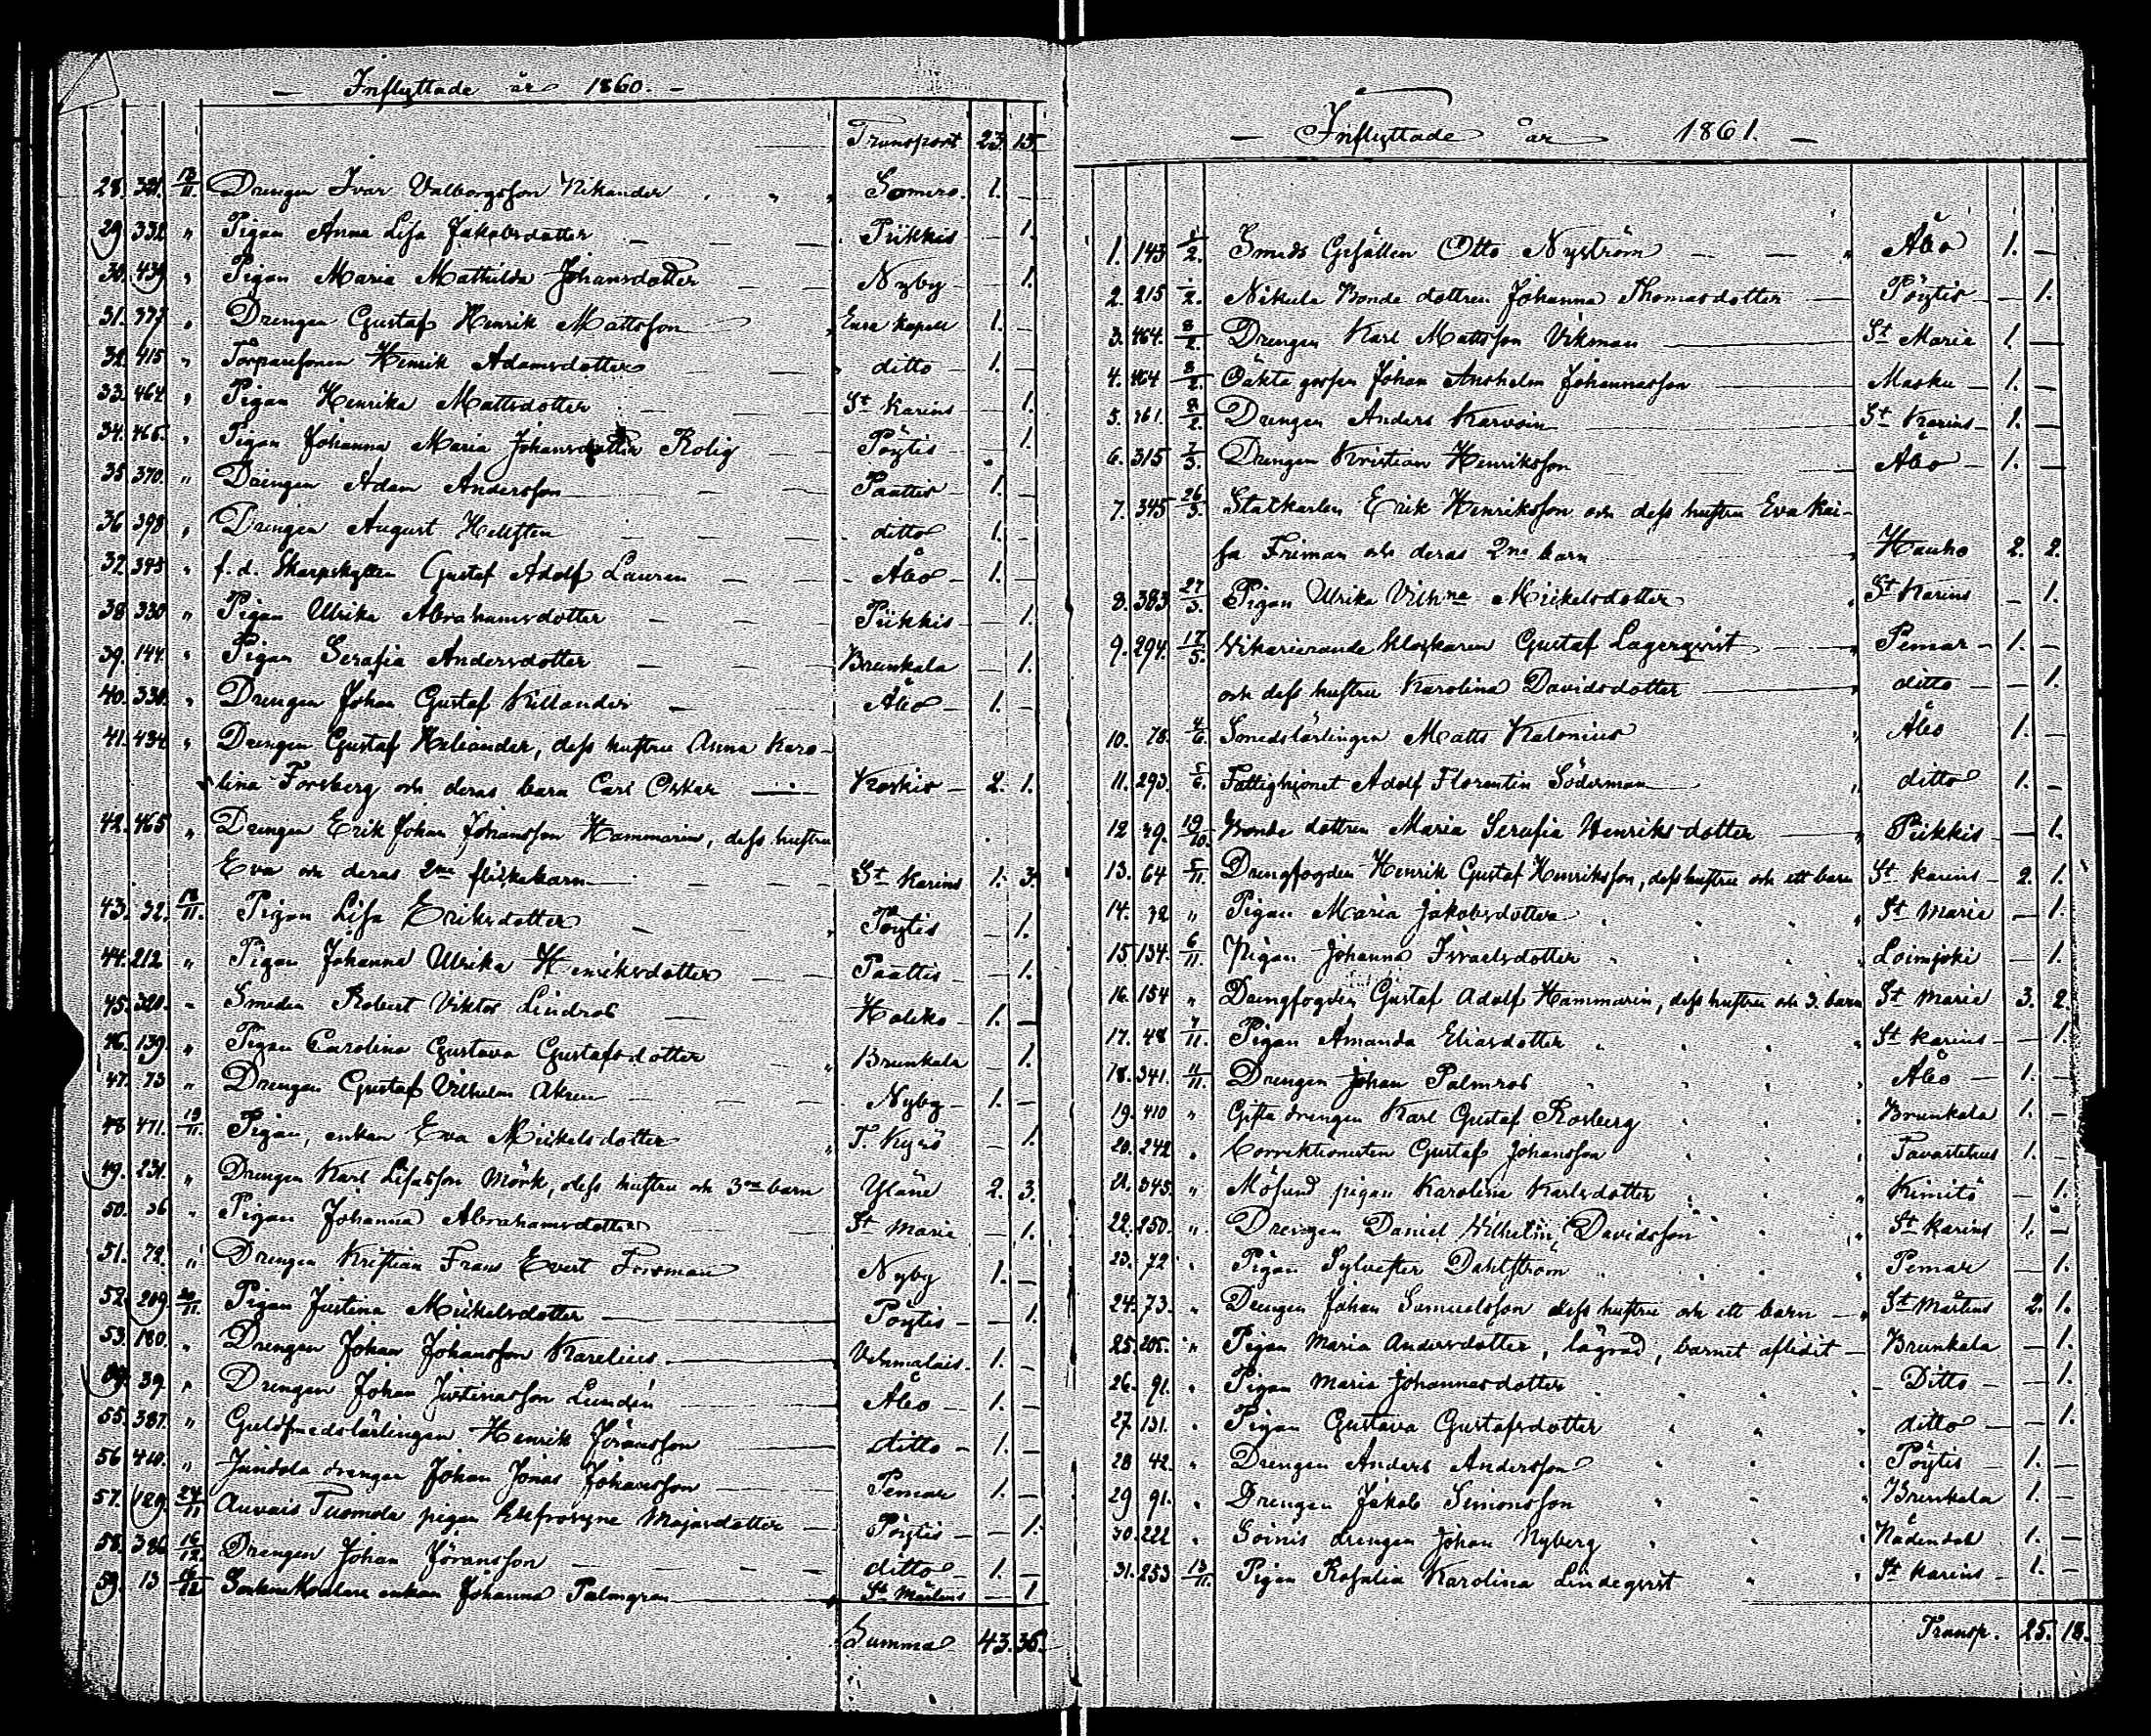 — Inflyttade år 1860. —
Transport 23. 15.
28. 381. 13/11. Drengen Ivar Valborgsson Nikander Somero. 1. —
29 332 " Pigan Anna Lisa Jakobsdotter Piikkis — 1.
30. 439 " Pigan Maria Mathilda Johansdotter Nyby — 1.
31. 377 " Drengen Gustaf Henrik Mattsson Enra Kapell 1. —
32. 415 " Torparesonen Henrik Adamsdotter ditto 1. —
33. 464 " Pigan Henrika Mattsdotter St Karins — 1.
34. 466. " Pigan Johanna Maria Johansdotter Rolig Pöytis — 1.
35 370. " Drengen Adam Andersson Paattis 1. —
36 398 " Drengen August Hellsten ditto 1. —
37. 343 " f.d. Skarpskytten Gustaf Adolf Lauren Åbo 1. —
38 330 " Pigan Ulrika Abrahamsdotter Piikkis — 1.
39. 144. " Pigan Serafia Andersdotter Brunkala — 1.
40. 338. " Drengen Johan Gustaf Killander Åbo 1. —
41. 434. " Drengen Gustaf Heliander, dess hustru Anna Karo-
lina Forsberg och deras barn Carl Oskar Koskis 2. 1.
42. 465 " Drengen Erik Johan Johansson Hammarin, dess hustru
Eva och deras 2ne flickebarn St Karins 1. 3.
43. 32. 18/11. Pigan Lisa Eriksdotter Pöytis — 1.
44. 212 " Pigan Johanna Ulrika Henriksdotter Paattis — 1.
45. 320. " Smeden Robert Viktor Lindros Haliko 1. —
46. 139 " Pigan Carolina Gustava Gustafsdotter Brunkala — 1.
47. 73 " Drengen Gustaf Vilhelm Akren Nyby 1. —
48 471. 19/11. Pigan, enkan Eva Mickelsdotter T. Kyrö — 1.
49. 231. " Drengen Karl Lisasson Mörk, dess hustru och 3ne barn Yläne 2. 3.
50. 36 " Pigan Johanna Abrahamsdotter St Maria — 1.
51. 72. " Drengen Kristian Frans Evert Forsman Nyby 1. —
52. 209. 20/11. Pigan Justina Mickelsdotter Pöytis — 1.
53. 180. " Drengen Johan Johansson Karelius Vehmalais 1. —
54. 39. " Drengen Johan Justinasson Lundén Åbo 1. —
55. 387. " Guldsmedslärlingen Henrik Jöransson ditto 1. —
56 410. " Jundola drengen Johan Jonas Johansson Pemar 1. —
57. 129. 24/11 Auvais Tuomola pigan Eufrosyne Majasdotter Pöytis — 1.
58. 386. 16/12. Drengen Johan Jöransson ditto 1. —
59. 13 16/12 enkan Johanna Palmgren St Mårtens — 1.
Summa 43. 36.
— Inflyttade år 1861. —
1. 143 1/2. Smeds Gesällen Otto Nyström Åbo 1. —
2. 215 1/2. Nikula Bonde dottren Johanna Thomasdotter Pöytis — 1.
3. 464. 8/2. Drengen Karl Mattsson Vikman St Maria 1. —
4. 464 8/2. Oäkta gossen Johan Anshelm Johannasson Masku 1. —
5. 161. 8/2. Drengen Anders Karvoin St Karins 1. —
6. 315 7/3. Drengen Kristian Henriksson Åbo 1. —
7. 345 26/3. Statkarlen Erik Henriksson och dess hustru Eva Kai-
sa Friman och deras 2ne barn Hauho 2. 2.
8. 383 27/3. Pigan Ulrika Vilhna Mickelsdotter St Karins — 1.
9. 294. 17/5. Vikarierande klockaren Gustaf Lagerqvist Pemar 1. —
och dess hustru Karolina Davidsdotter ditto — 1.
10. 78. 4/6. Smedslärlingen Matts Kalonius Åbo 1. —
11. 293. 5/6. Fattighjonet Adolf Florentin Söderman ditto 1. —
12 39. 19/10. Bonde dottren Maria Serafia Henriksdotter Piikkis — 1.
13. 64 5/11. Drengfogden Henrik Gustaf Henriksson, dess hustru och ett barn St Karins 2. 1.
14. 32 " Pigan Maria Jakobsdotter St Marie — 1.
15 134. 6/11. Pigan Johanna Israelsdotter Loimjoki — 1.
16. 154 " Drengfogden Gustaf Adolf Hammarin, dess hustru och 3. barn St Marie 3. 2.
17. 48 7/11. Pigan Amanda Eliasdotter St Karins — 1.
18. 341. 11/11. Drengen Johan Palmros Åbo 1. —
19. 410 " Gifta drengen Karl Gustaf Rosberg Brunkala 1. —
20. 242 " Correktionisten Gustaf Johansson Tavastehus 1. —
21. 345. " Mösund pigan Karolina Karlsdotter Kimito — 1.
22. 250. " Drengen Daniel Wilhelm Davidsson St Karins 1. —
23. 72 " Pigan Sylvester Dahlström Pemar — 1.
24. 73. " Drengen Johan Samuelsson dess hustru och ett barn St Mårtens 2. 1.
25. 205. " Pigan Maria Andersdotter, lägrad, barnet aflidit Brunkala — 1.
26. 91. " Pigan Maria Johannasdotter Ditto — 1.
27. 131. " Pigan Gustava Gustafsdotter ditto — 1.
28 42. " Drengen Anders Andersson Pöytis 1. —
29 91. " Drengen Jakob Simonsson Brunkala 1. —
30. 222 " Soinis drengen Johan Nyberg Nådendal 1. —
31. 253 13/11. Pigan Rosalia Karolina Lindeqvist St Karins 1. —
Transp. 25. 18.